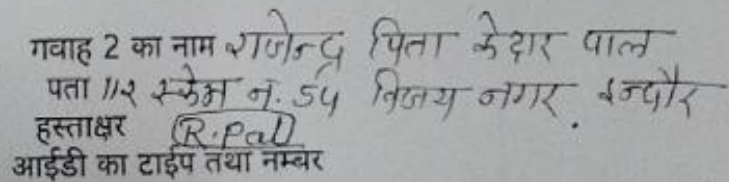 गवाह 2 का नाम राजेन्द्र पिता केदार पाल
पता 112 स्केम न. 54 विजय नगर इन्दौर
हस्ताक्षर R.Pal
आईडी का टाईप तथा नम्बर